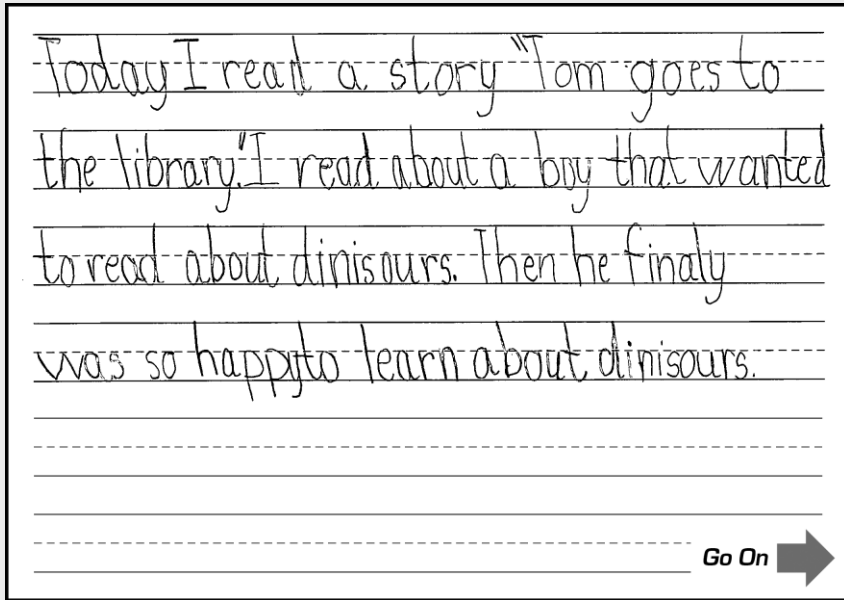 Today I read a story "Tom goes to
the library." I read about a boy that wanted
to read about dinisours. Then he finaly
was so happy to learn about dinisours.
Go On